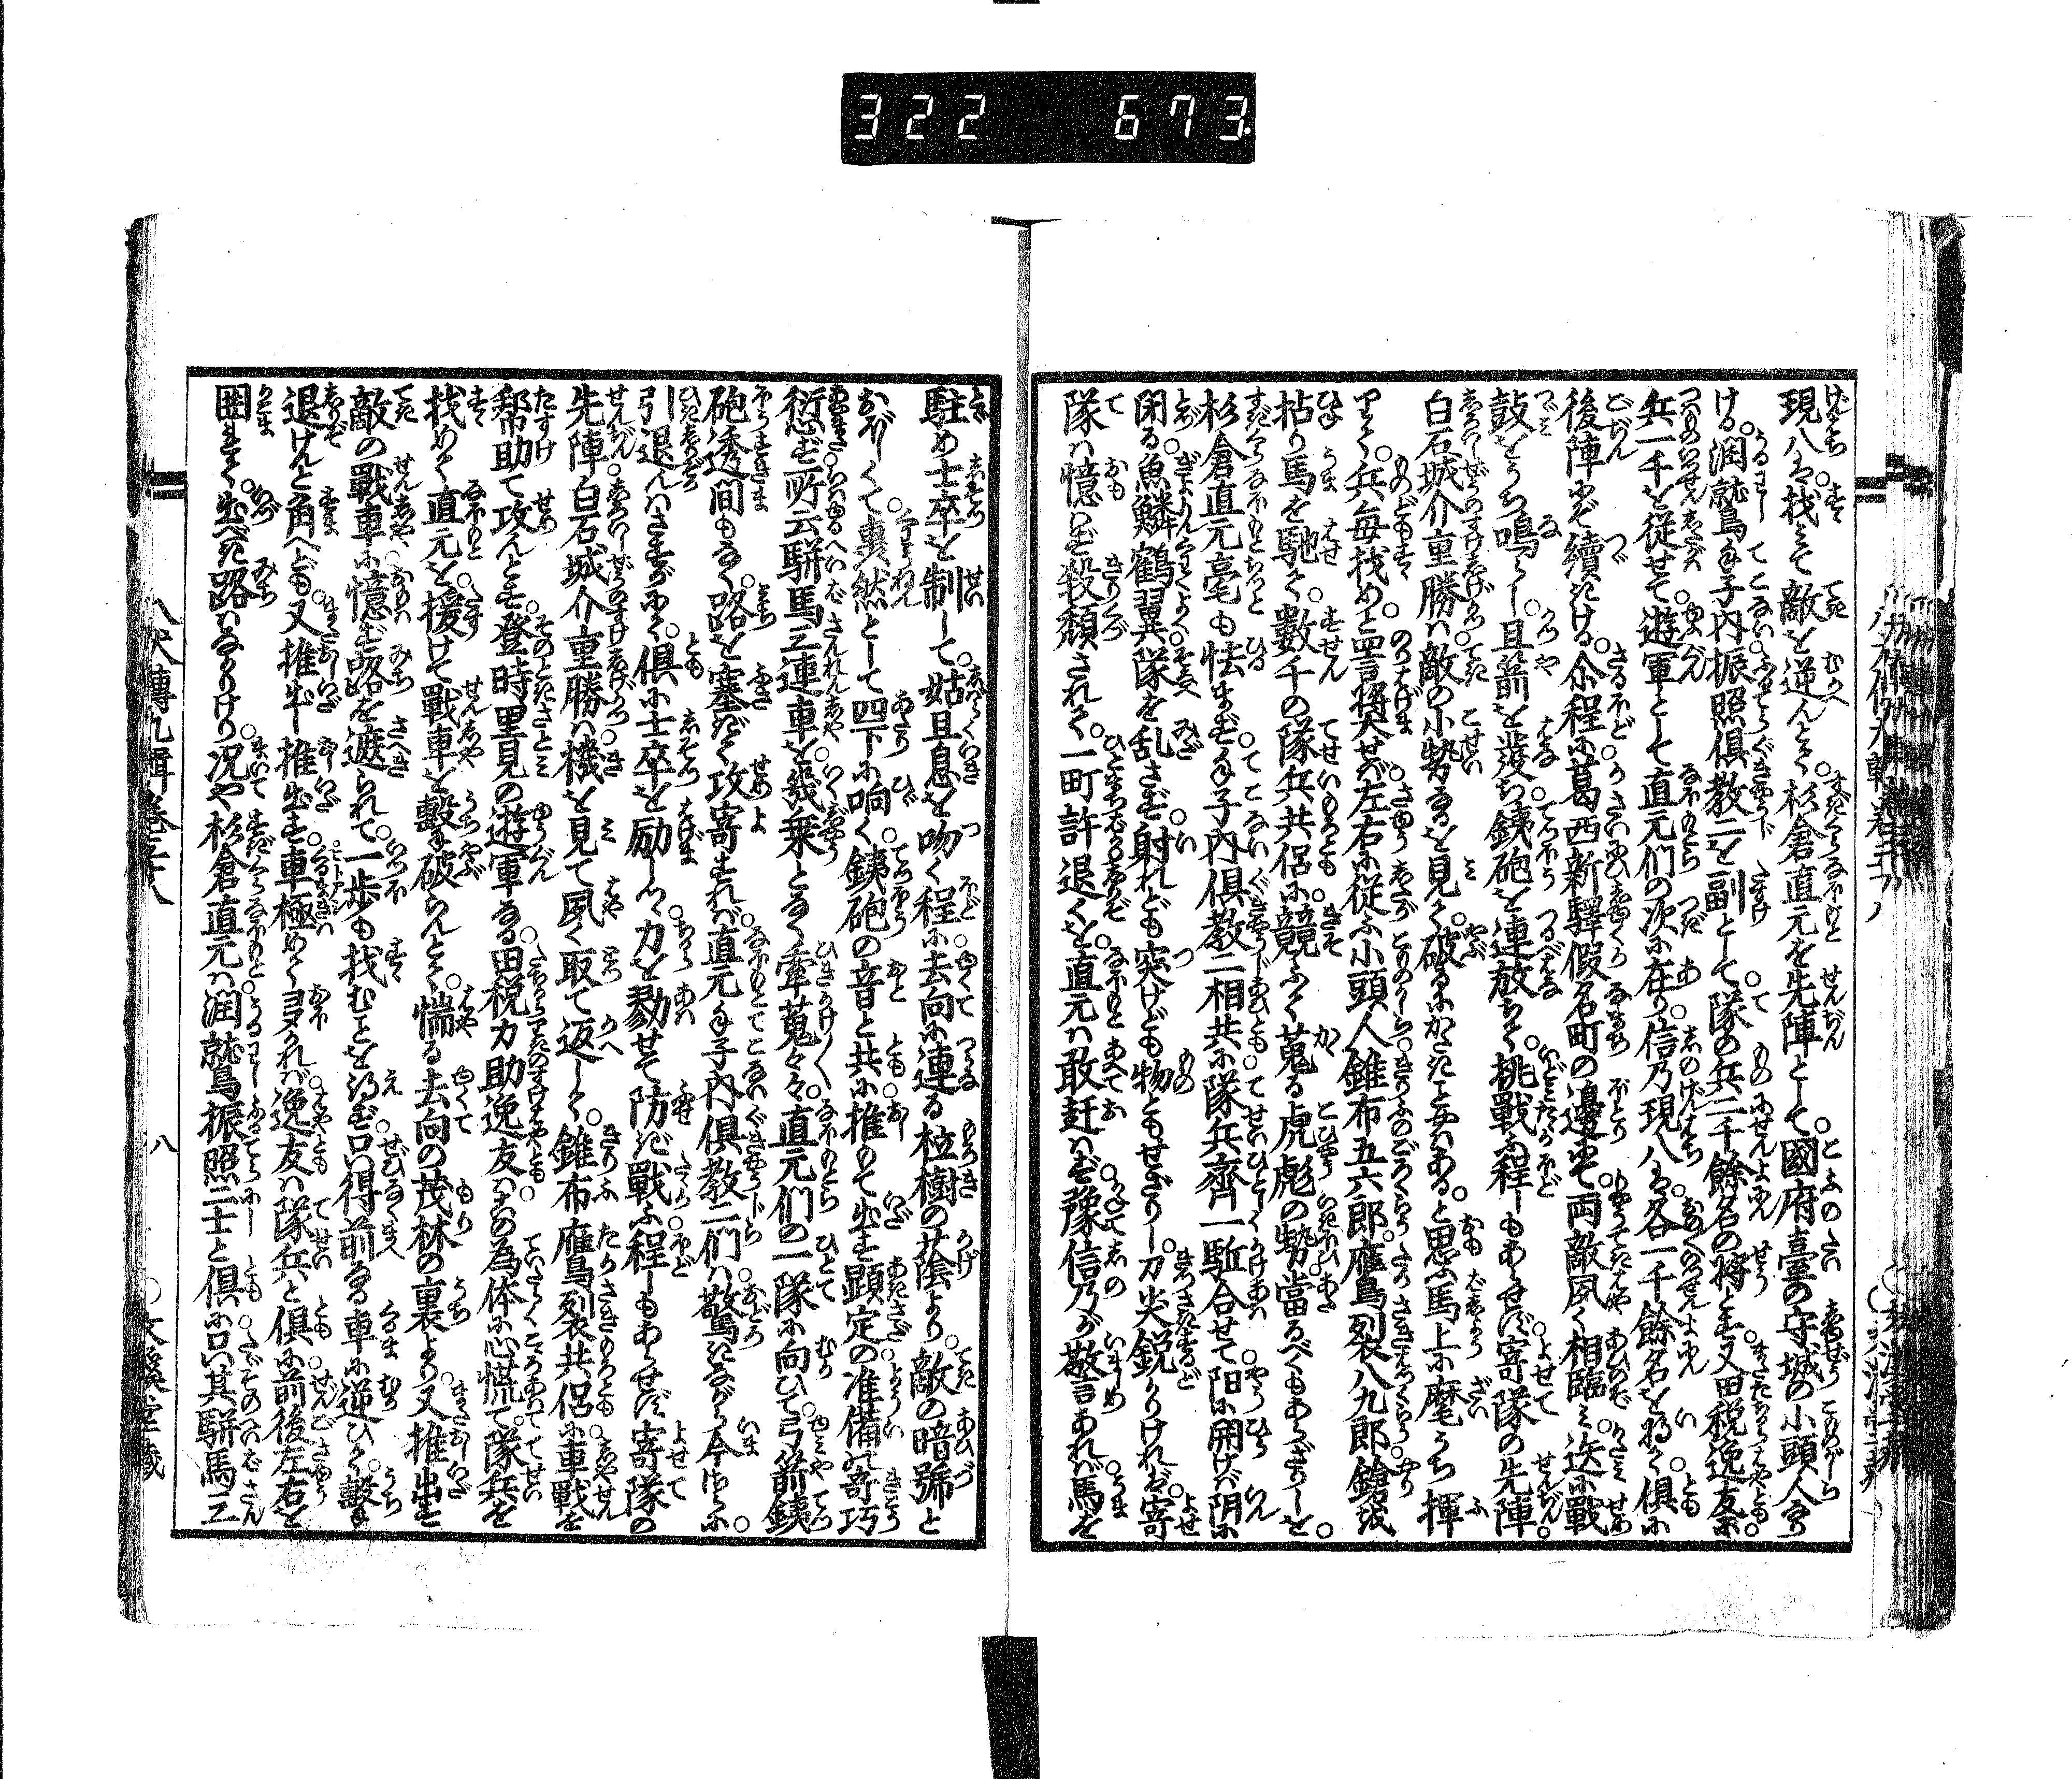 322 673
現八は找みて敵を逆んとす杉倉直元を先陣として國府臺の守城の小頭人なり
ける潤鷲手子内振照倶教二を副として隊の兵二千餘名の將とす又田税逸友
兵一千を従せて遊軍として直元們の次に在り信乃現八は各一千餘名を將て倶に
後陣にぞ續きける尒程に葛西新驛假名町の邊にて両敵夙く相臨み迭に戰
鼓をうち鳴らし且箭を發ち銕砲を連放ちて挑戰ふ程しもあらせず寄隊の先陣
白石城介重勝は敵の小勢なるを見て破るにかたきことやはあると思へば馬上に麾うち揮
りて兵毎找めと罵將せば左右に従ふ小頭人錐布五六郎鷹裂八九郎鎗を
拈り馬を馳て數千の隊兵共侶に競ふて蒐る虎彪の勢ひ當るべくもあらざりしを
杉倉直元毫も怯まず手子内倶教二相共に隊兵齊一駈合せて陽に開けば陰に
閉る魚鱗鶴翼隊を乱さず射れども突けども物ともせざりし刀尖鋭かりければ寄
隊は憶はず殺頽されて一町許退くを直元は敢赶はず豫信乃が敬言あれば馬を
駐め士卒を制して姑且息を吻く程に去向に連る柆樹の蔭より敵の暗號と
おぼしくて轟然として四下に响く銕砲の音と共に推もて出す顯定の准備の竒巧
愆ず所云駢馬三連車を幾乗となく牽蒐々々直元們の一隊に向ひて弓箭銕
砲透間もなく路を塞ぎて攻寄すれば直元手子内倶教二們は驚きながら今さらに
引退んはさすがにて倶に士卒を励しつ力を勠せて防ぎ戰ふ程しもあらせず寄隊の
先陣白石城介重勝は機を見て夙く取て返して錐布鷹裂共侶に車戰を
幇助て攻んとす登時里見の遊軍なる田税力助逸友はこの為体に心慌て隊兵を
找めて直元を援けて戰車を擊破らんとて惴る去向の茂林の裏より又推出す
敵の戰車に憶はず路を遮られて一歩も找むことを得ず只得前なる車に逆ひて擊ま
退けんと角へども又推出し推出す車極めて夛かれば逸友は隊兵と倶に前後左右を
囲まれて出べき路はなかりけり况や杉倉直元は潤鷲振照二士と倶に只其駢馬三
八犬傳九輯巻三十八
八